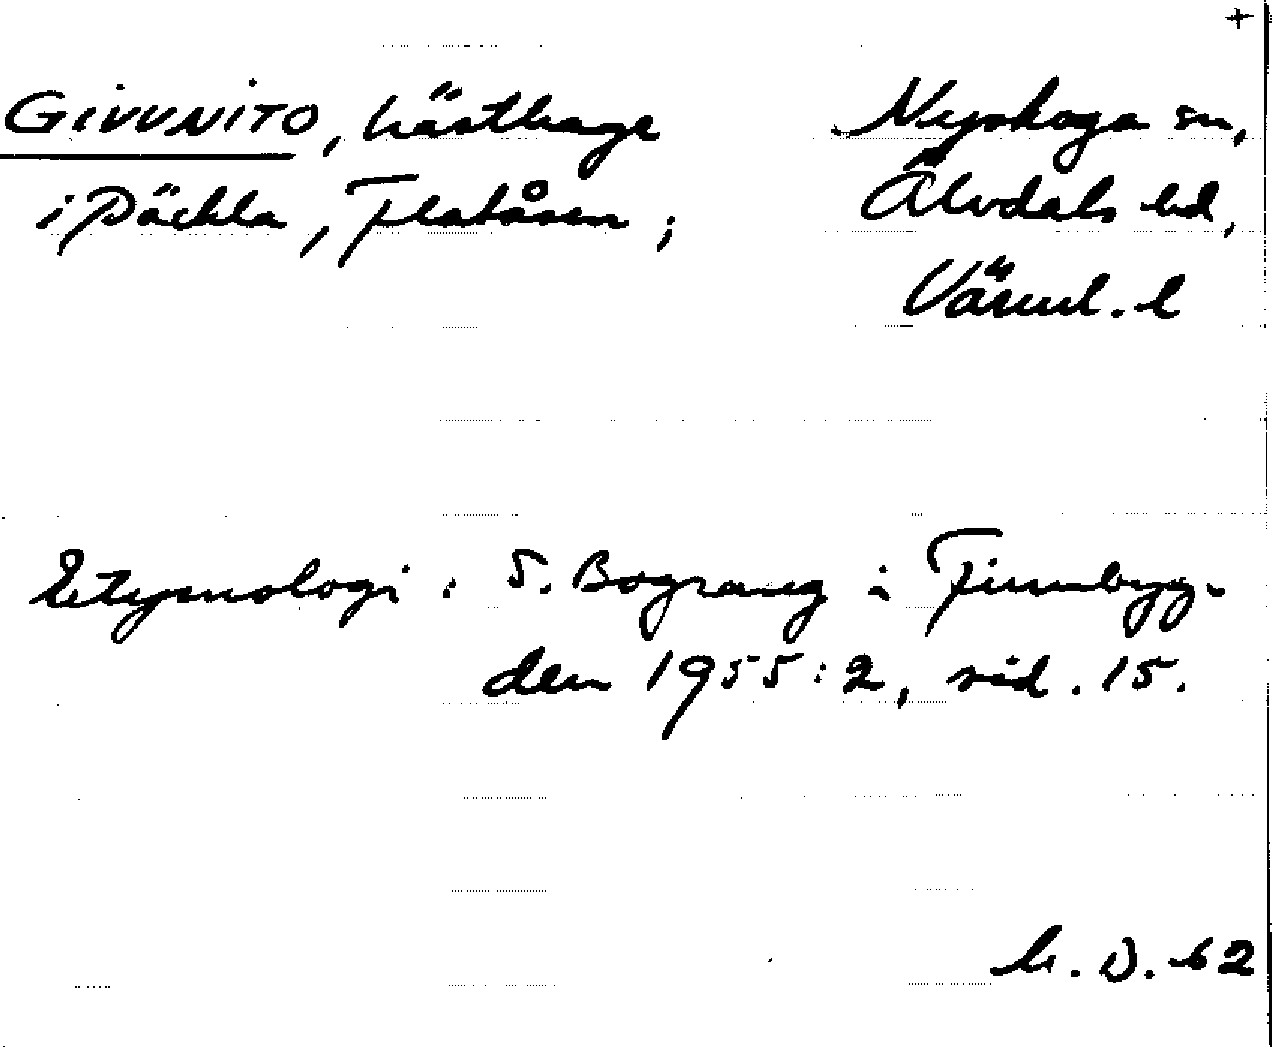 +
GIVVNITO, hästhage
i Päckla, Flatåsen;
Nyskoga sn,
Älvdals hd,
Värml. l
Etymologi: S. Bograng i Finnbyg-
den 1955:2, sid. 15.
M. D. 62